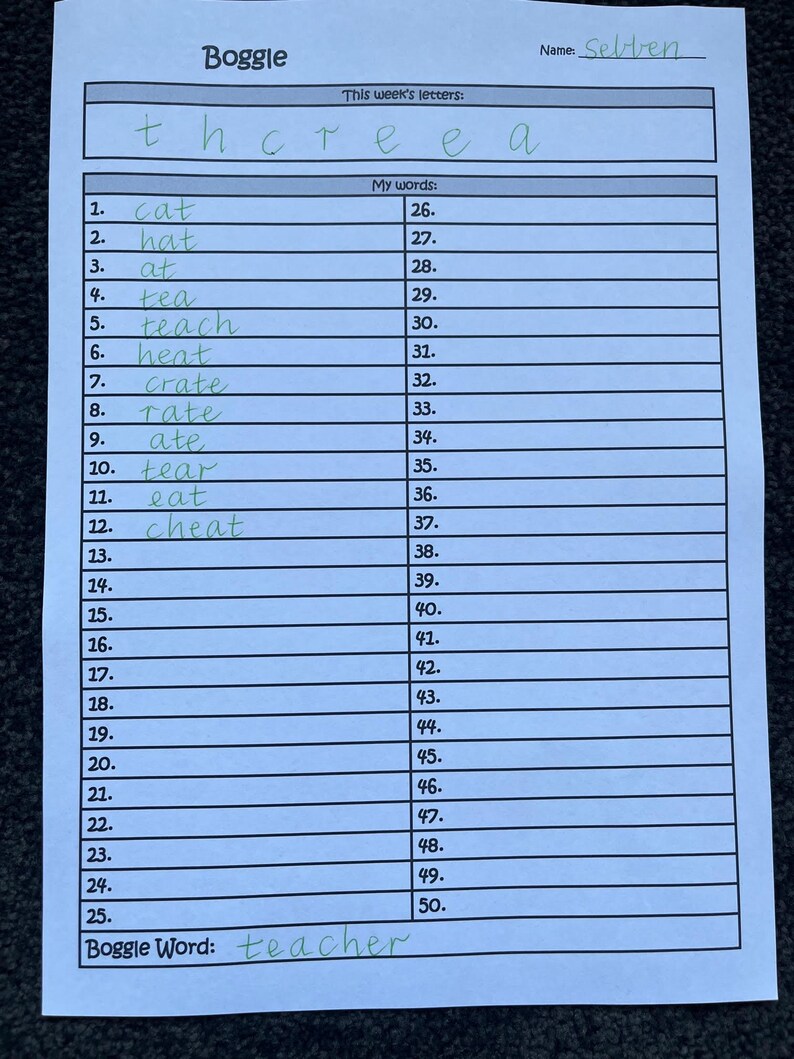 Boggle
Name: Sebben
This week's letters:
t h c r e e a
My words:
1. cat
2. hat
3. at
4. tea
5. teach
6. heat
7. crate
8. rate
9. ate
10. tear
11. eat
12. cheat
13.
14.
15.
16.
17.
18.
19.
20.
21.
22.
23.
24.
25.
26.
27.
28.
29.
30.
31.
32.
33.
34.
35.
36.
37.
38.
39.
40.
41.
42.
43.
44.
45.
46.
47.
48.
49.
50.
Boggle Word: teacher